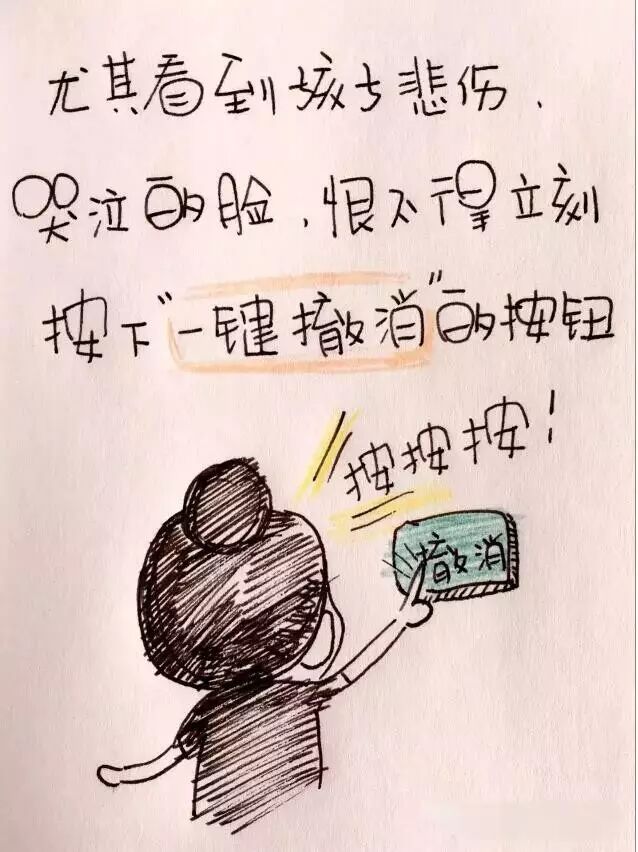 尤其看到孩子悲伤、
哭泣的脸，恨不得立刻
按下“一键撤消”的按钮
按按按！
撤消